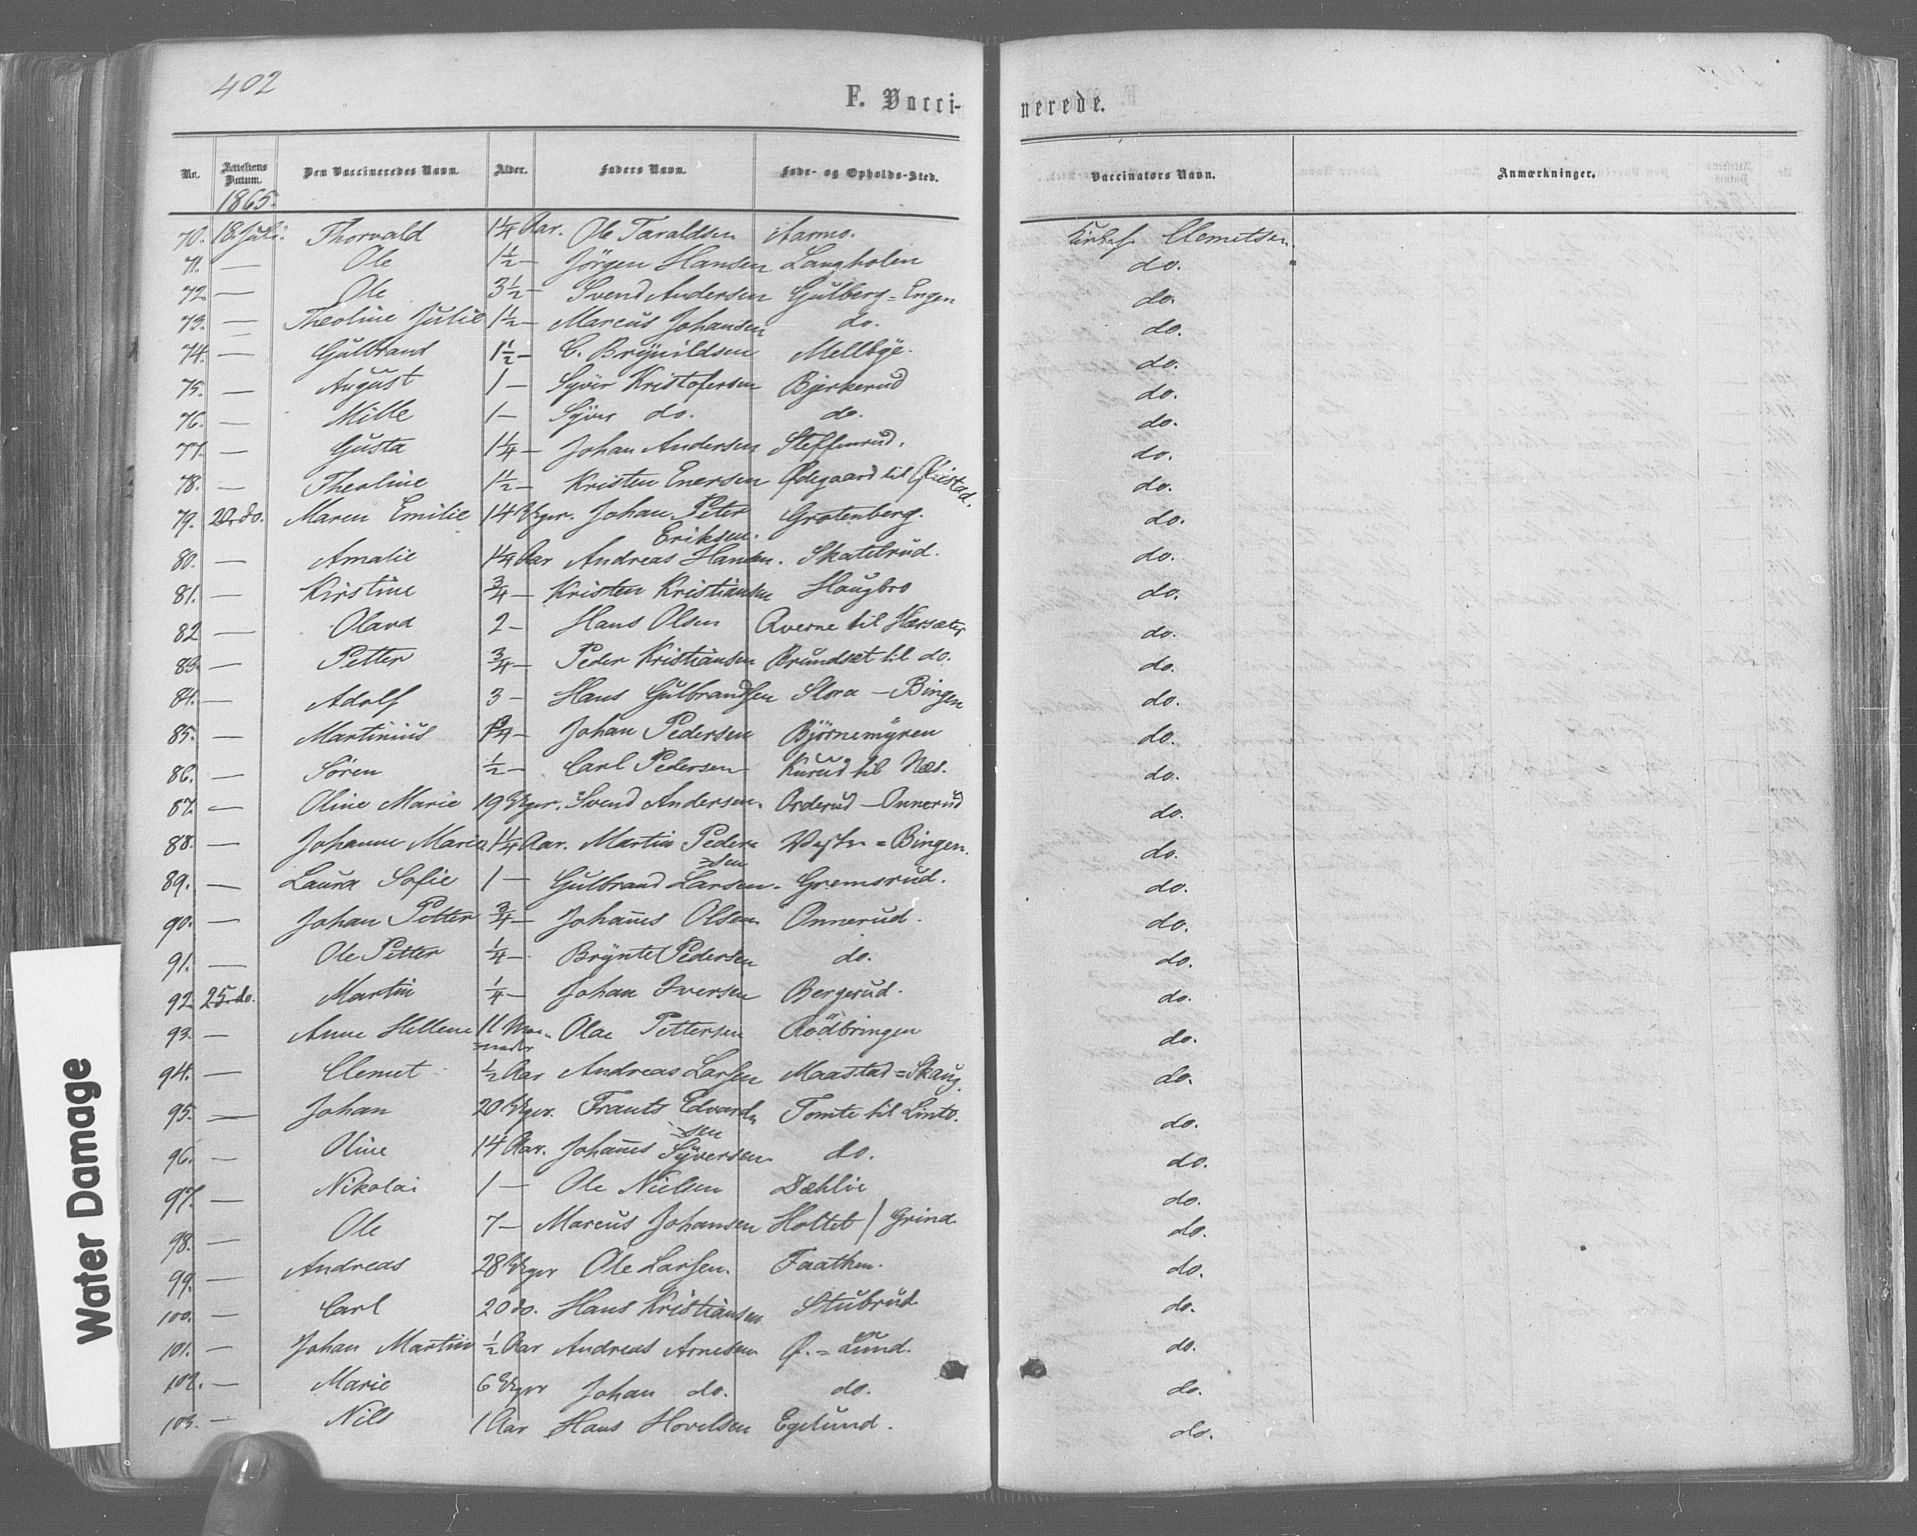 402
F. Vacci-
nerede.
No. Attestens Datum. Den Vaccineredes Navn. Alder. Faders Navn. Føde- og Opholds-Sted. Vaccinators Navn. Anmærkninger.
1865.
70. 18. Juli. Thorvald 1¼ Aar. Ole Taraldsen Aarmo. Clemetsen
71. — Ole 1½ — Jörgen Hansen Langholen do.
72. — Ole 3½ — Svend Andersen Gulberg=Engen do.
73. — Theoline Julie 1½ — Marcus Johansen do. do.
74. — Gulbrand 1½ — C. Brynildsen Mellbye. do.
75. — August 1 — Syver Kristofersen Bjerkerud do.
76. — Mille 1 — Syver do. do. do.
77. — Gusta 1¼ — Johan Andersen Steffenrud. do.
78. — Theoline 1½ — Kristen Enersen Ødegaard til do.
79. 20. do. Maren Emilie 14 Uger. Johan Peter Grotenberg. do.
Eriksen.
80. — Amalie 1¼ Aar Andreas Hansen. Skatelrud. do.
81. — Kirstine ¾ — Kristen Kristiansen Haugbro do.
82 — Olava 2 — Hans Olsen Qverne til Hersæter do.
83. — Petter ¾ — Peder Kristiansen Brundsæt til do. do.
84. — Adolf 3 — Hans Gulbrandsen Stora — Bingen do.
85. — Martinius ¾ — Johan Pedersen Björnemyren do.
86. — Sören ½ — Carl Pedersen Kurud til Næs. do.
87. — Oline Marie 19 Uger. Svend Andersen. Orderud — Onnerud do.
88. — Johanne Marie 1¼ Aar. Martin Peder= Vestre=Bingen. do.
=sen
89. — Laura Sofie 1 — Gulbrand Larsen. Gremsrud. do.
90. — Johan Petter ¾ — Johannes Olsen Onnerud. do.
91. — Ole Petter ¼ — Bryntel Pedersen do. do.
92. 25. do. Martin ¼ — Johan Iversen Bergerud. do.
93. — Anne Hellene 11 Maa= Olae Pettersen Rödbringen do.
=neder
94. — Clemet ½ Aar Andreas Larsen Maastad=Skaug. do.
95. — Johan 20 Uger. Frants Edvard= Tomte til Linto. do.
=sen
96. — Oline 14 Aar. Johannes Syversen do. do.
97. — Nikolai 1 — Ole Nielsen Dæhlie do.
98. — Ole 7 — Marcus Johansen Holtet / Grind do.
99. — Andreas 28 Uger Ole Larsen. Faathen. do.
100. — Carl 20 do. Hans Kristiansen Stubrud do.
101. — Johan Martin ½ Aar Andreas Arnesen Ø.=Lund. do.
102. — Marie 6 Uger Johan do. do. do.
103. — Nils 1 Aar Hans Hovelsen Egelund. do.
Water Damage